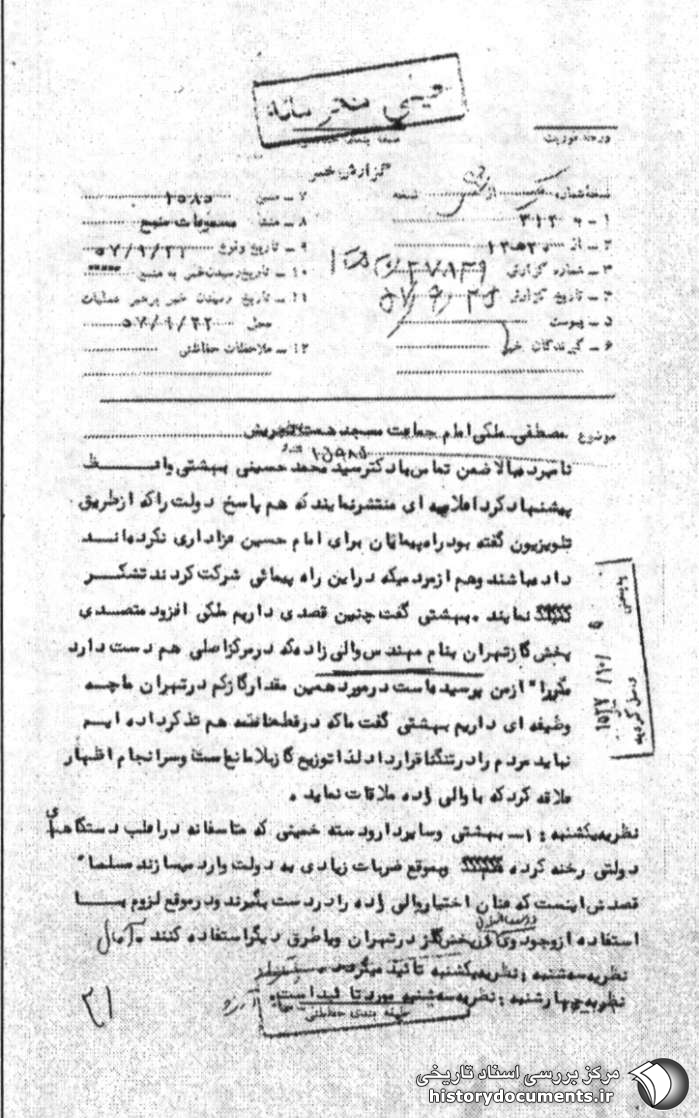 خیلی محرمانه
درجه فوریت
گزارش خبر
نسخه شماره از نسخه
۱ - به ۳۱۲
۲ - از ۱۲ ه ۲۰
۳ - شماره گزارش
۴ - تاریخ گزارش
۵ - پیوست
۶ - گیرندگان خبر
۷ - منبع ۱۵۸۵
۸ - منشاء مسموعات منبع
۹ - تاریخ وقوع ۵۷/۹/۲۱
۱۰ - تاریخ رسیدن خبر به منبع
۱۱ - تاریخ رسیدن خبر برهبر عملیات
محل ۵۷/۹/۲۲
۱۲ - ملاحظات حفاظتی
موضوع مصطفی ملکی امام جماعت مسجد همت تجریش
نامبرده بالا ضمن تماس با دکتر سید محمد حسینی بهشتی واعظ
پیشنهاد کرد اعلامیه ای منتشر نمایند که هم پاسخ دولت را که از طریق
تلویزیون گفته بود راه پیمایان برای امام حسین عزاداری نکرده اند
داده باشند وهم از مردمیکه در این راه پیمائی شرکت کردند تشکر
نمایند . بهشتی گفت چنین قصدی داریم ملکی افزود متصدی
پخش گاز تهران بنام مهندس والی زاده که در مرکز اصلی هم دست دارد
مکررا" از من پرسیده است در مورد همین مقدار گاز کم در تهران ما چه
وظیفه ای داریم بهشتی گفت ما که در قطعنامه هم تذکر داده ایم
نباید مردم را در تنگنا قرار داد لذا توزیع گاز بلامانع است و سرانجام اظهار
علاقه کرد که با والی زاده ملاقات نماید .
نظریه یکشنبه : ۱ - بهشتی و سایر دارودسته خمینی که متاسفانه در اغلب دستگاههای
دولتی رخنه کرده و بموقع ضربات زیادی به دولت وارد میسازند مسلما"
قصدش اینست که عنان اختیار والی زاده را در دست بگیرند و در موقع لزوم با
استفاده از وجود وی در پخش گاز در تهران و یا طرق دیگر استفاده کنند . آمال
نظریه سه شنبه : نظریه یکشنبه تأئید میگردد .
نظریه چهارشنبه : نظریه سه شنبه مورد تائید است .
طبقه بندی حفاظتی
۲۱
مرکز بررسی اسناد تاریخی
historydocuments.ir